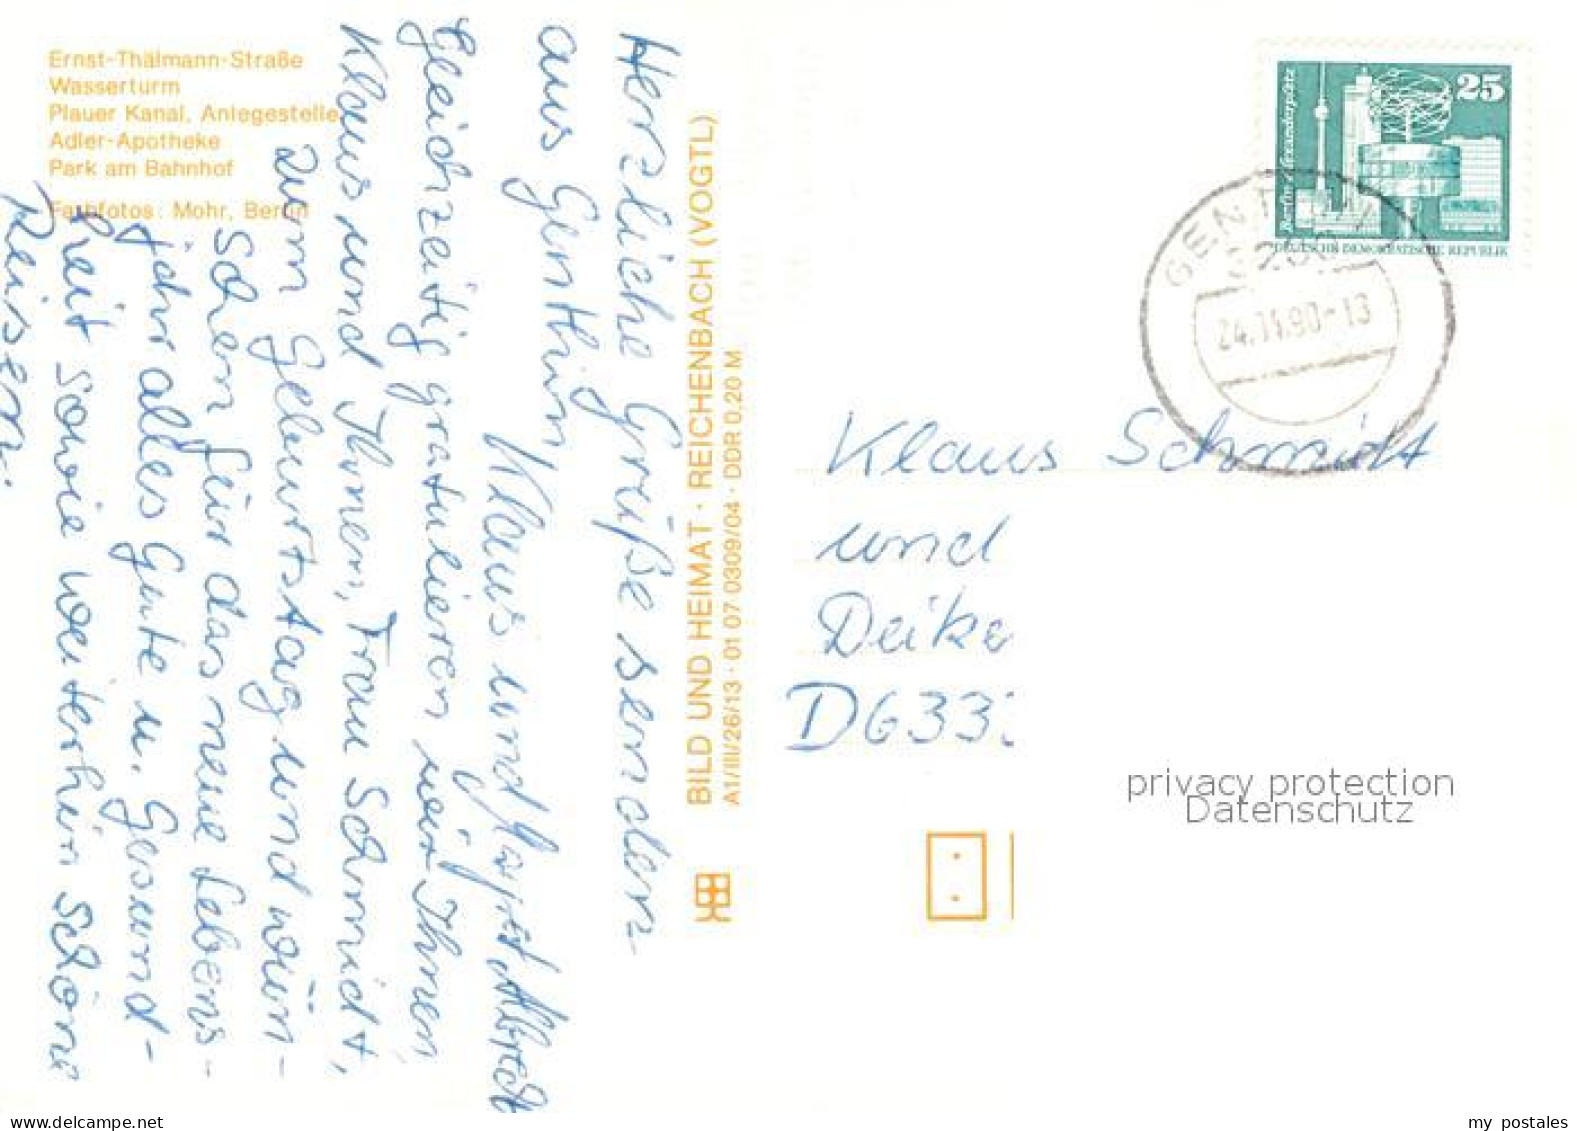 Ernst-Thälmann-Straße
Wasserturm
Plauer Kanal, Anlegestelle
Adler-Apotheke
Park am Bahnhof
Farbfotos: Mohr, Berlin
Herzliche Grüße senden
aus Genthin
Klaus und Margret Albrecht
Gleichzeitig gratulieren wir Ihnen,
Klaus und Ihnen, Frau Schmidt,
zum Geburtstag und wün-
schen für das neue Lebens-
jahr alles Gute u. Gesund-
heit sowie weiterhin schöne
Reisen.
BILD UND HEIMAT · REICHENBACH (VOGTL)
A1/III/26/13 · 01 07 0309/04 · DDR 0,20 M
25
Berlin, Alexanderplatz
DEUTSCHE DEMOKRATISCHE REPUBLIK
GENTHIN
24.11.90-13
Klaus Schmidt
und
Deike
D633
privacy protection
Datenschutz
my postales